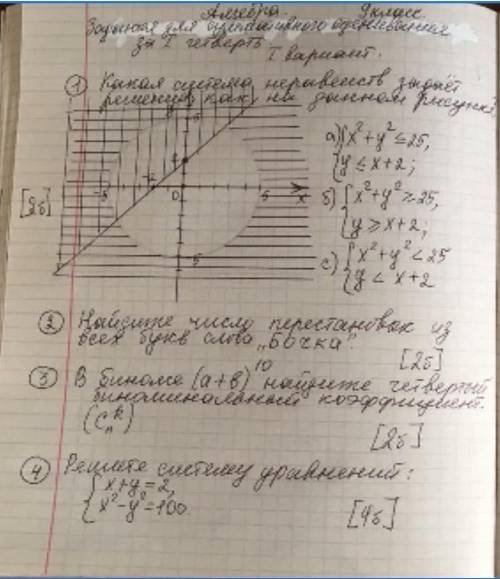 Алгебра. 9 класс.
Задания для суммативного оценивания
за I четверть
I вариант.
① Какая система неравенств задаёт
решения, как на данном рисунке.
5
а) { x² + y² ≤ 25,
y ≤ x + 2;
-5 -2 0 5 x
[2б]
б) { x² + y² ≥ 25,
y ≥ x + 2;
5
с) { x² + y² < 25
y < x + 2
② Найдите число перестановок из
всех букв слова „Бочка".
[2б]
③ В биноме (a+b)¹⁰ найдите четвертый
биноминальный коэффициент.
(Cₙᵏ)
[2б]
④ Решите систему уравнений:
{ x + y = 2,
x² - y² = 100.
[4б]